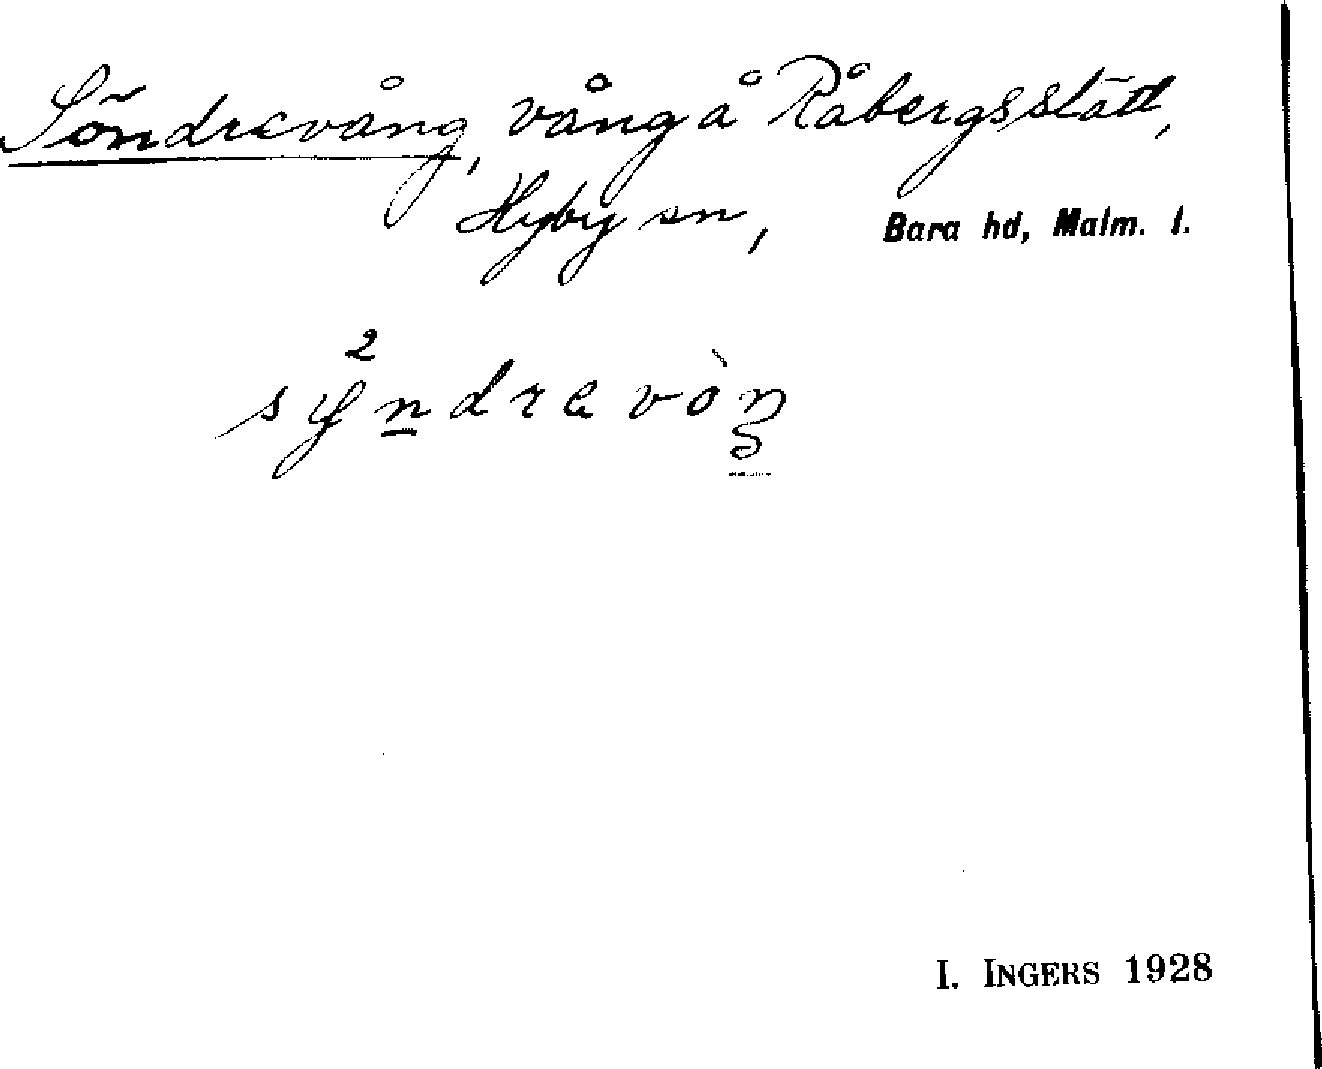 Söndrevång, vång å Råbergsstätt,
Hyby sn, Bara hd, Malm. l.
I. INGERS 1928